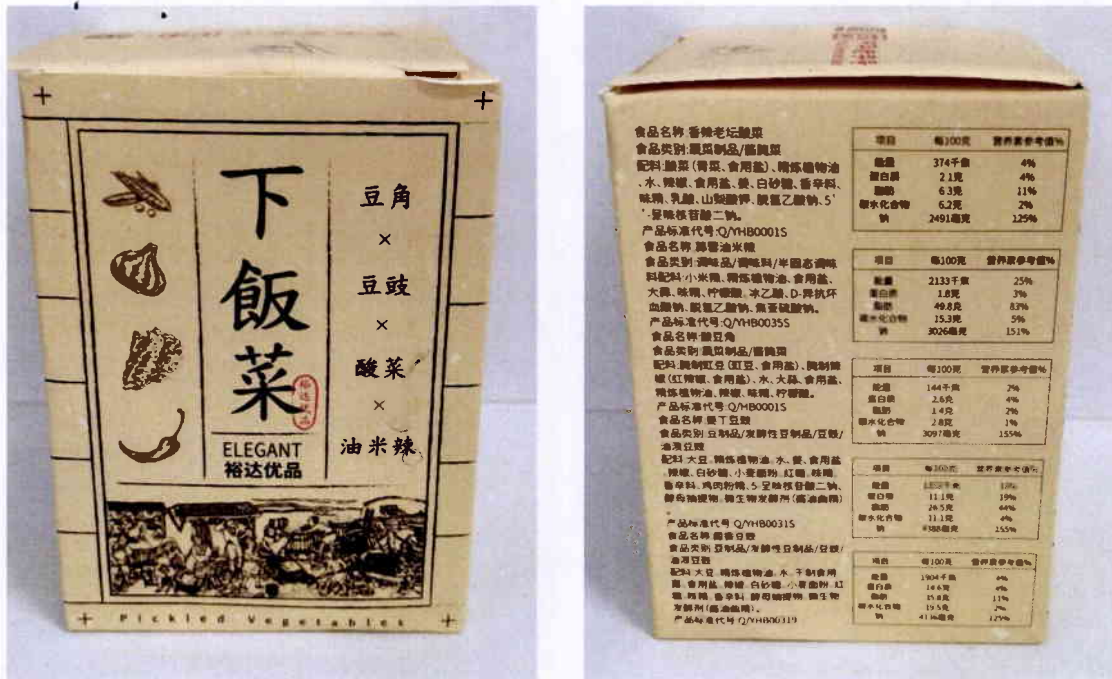 下飯菜
裕达优品
ELEGANT
裕达优品
豆角
×
豆豉
×
酸菜
×
油米辣
Pickled Vegetables
食品名称:香辣老坛酸菜
食品类别:蔬菜制品/酱腌菜
配料:酸菜(青菜、食用盐)、精炼植物油
、水、辣椒、食用盐、姜、白砂糖、香辛料、
味精、乳酸、山梨酸钾、脱氢乙酸钠、5'
-呈味核苷酸二钠。
产品标准代号:Q/YHB0001S
食品名称:蒜蓉油米辣
食品类别:调味品/调味料/半固态调味
料配料:小米辣、精炼植物油、食用盐、
大蒜、味精、柠檬酸、冰乙酸、D-异抗坏
血酸钠、脱氢乙酸钠、焦亚硫酸钠。
产品标准代号:Q/YHB0035S
食品名称:酸豆角
食品类别:蔬菜制品/酱腌菜
配料:腌制豇豆(豇豆、食用盐)、腌制辣
椒(红辣椒、食用盐)、水、大蒜、食用盐、
精炼植物油、辣椒、味精、柠檬酸。
产品标准代号:Q/YHB0001S
食品名称:姜丁豆豉
食品类别:豆制品/发酵性豆制品/豆豉/
油浸豆豉
配料:大豆、精炼植物油、水、姜、食用盐
、辣椒、白砂糖、小麦面粉、红糖、味精、
香辛料、鸡肉粉精、5-呈味核苷酸二钠、
酵母抽提物、微生物发酵剂(酱油曲精)
。
产品标准代号:Q/YHB0031S
食品类别:豆制品/发酵性豆制品/豆豉/
油浸豆豉
配料:大豆、精炼植物油、水、干制食用
菌、食用盐、辣椒、白砂糖、小麦面粉、红
糖、味精、香辛料、酵母抽提物、微生物
发酵剂(酱油曲精)。
产品标准代号:Q/YHB0031S
项目 每100克 营养素参考值%
能量 374千焦 4%
蛋白质 2.1克 4%
脂肪 6.3克 11%
碳水化合物 6.2克 2%
钠 2491毫克 125%
项目 每100克 营养素参考值%
能量 2133千焦 25%
蛋白质 1.8克 3%
脂肪 49.8克 83%
碳水化合物 15.3克 5%
钠 3026毫克 151%
项目 每100克 营养素参考值%
能量 144千焦 2%
蛋白质 2.6克 4%
脂肪 1.4克 2%
碳水化合物 2.8克 1%
钠 3097毫克 155%
项目 每100克 营养素参考值%
能量
蛋白质 11.1克 19%
脂肪 26.5克 44%
碳水化合物 11.1克 4%
钠 155%
项目 每100克 营养素参考值%
能量 1904千焦 4%
蛋白质 4%
脂肪 11%
碳水化合物 19.5克 2%
钠 125%